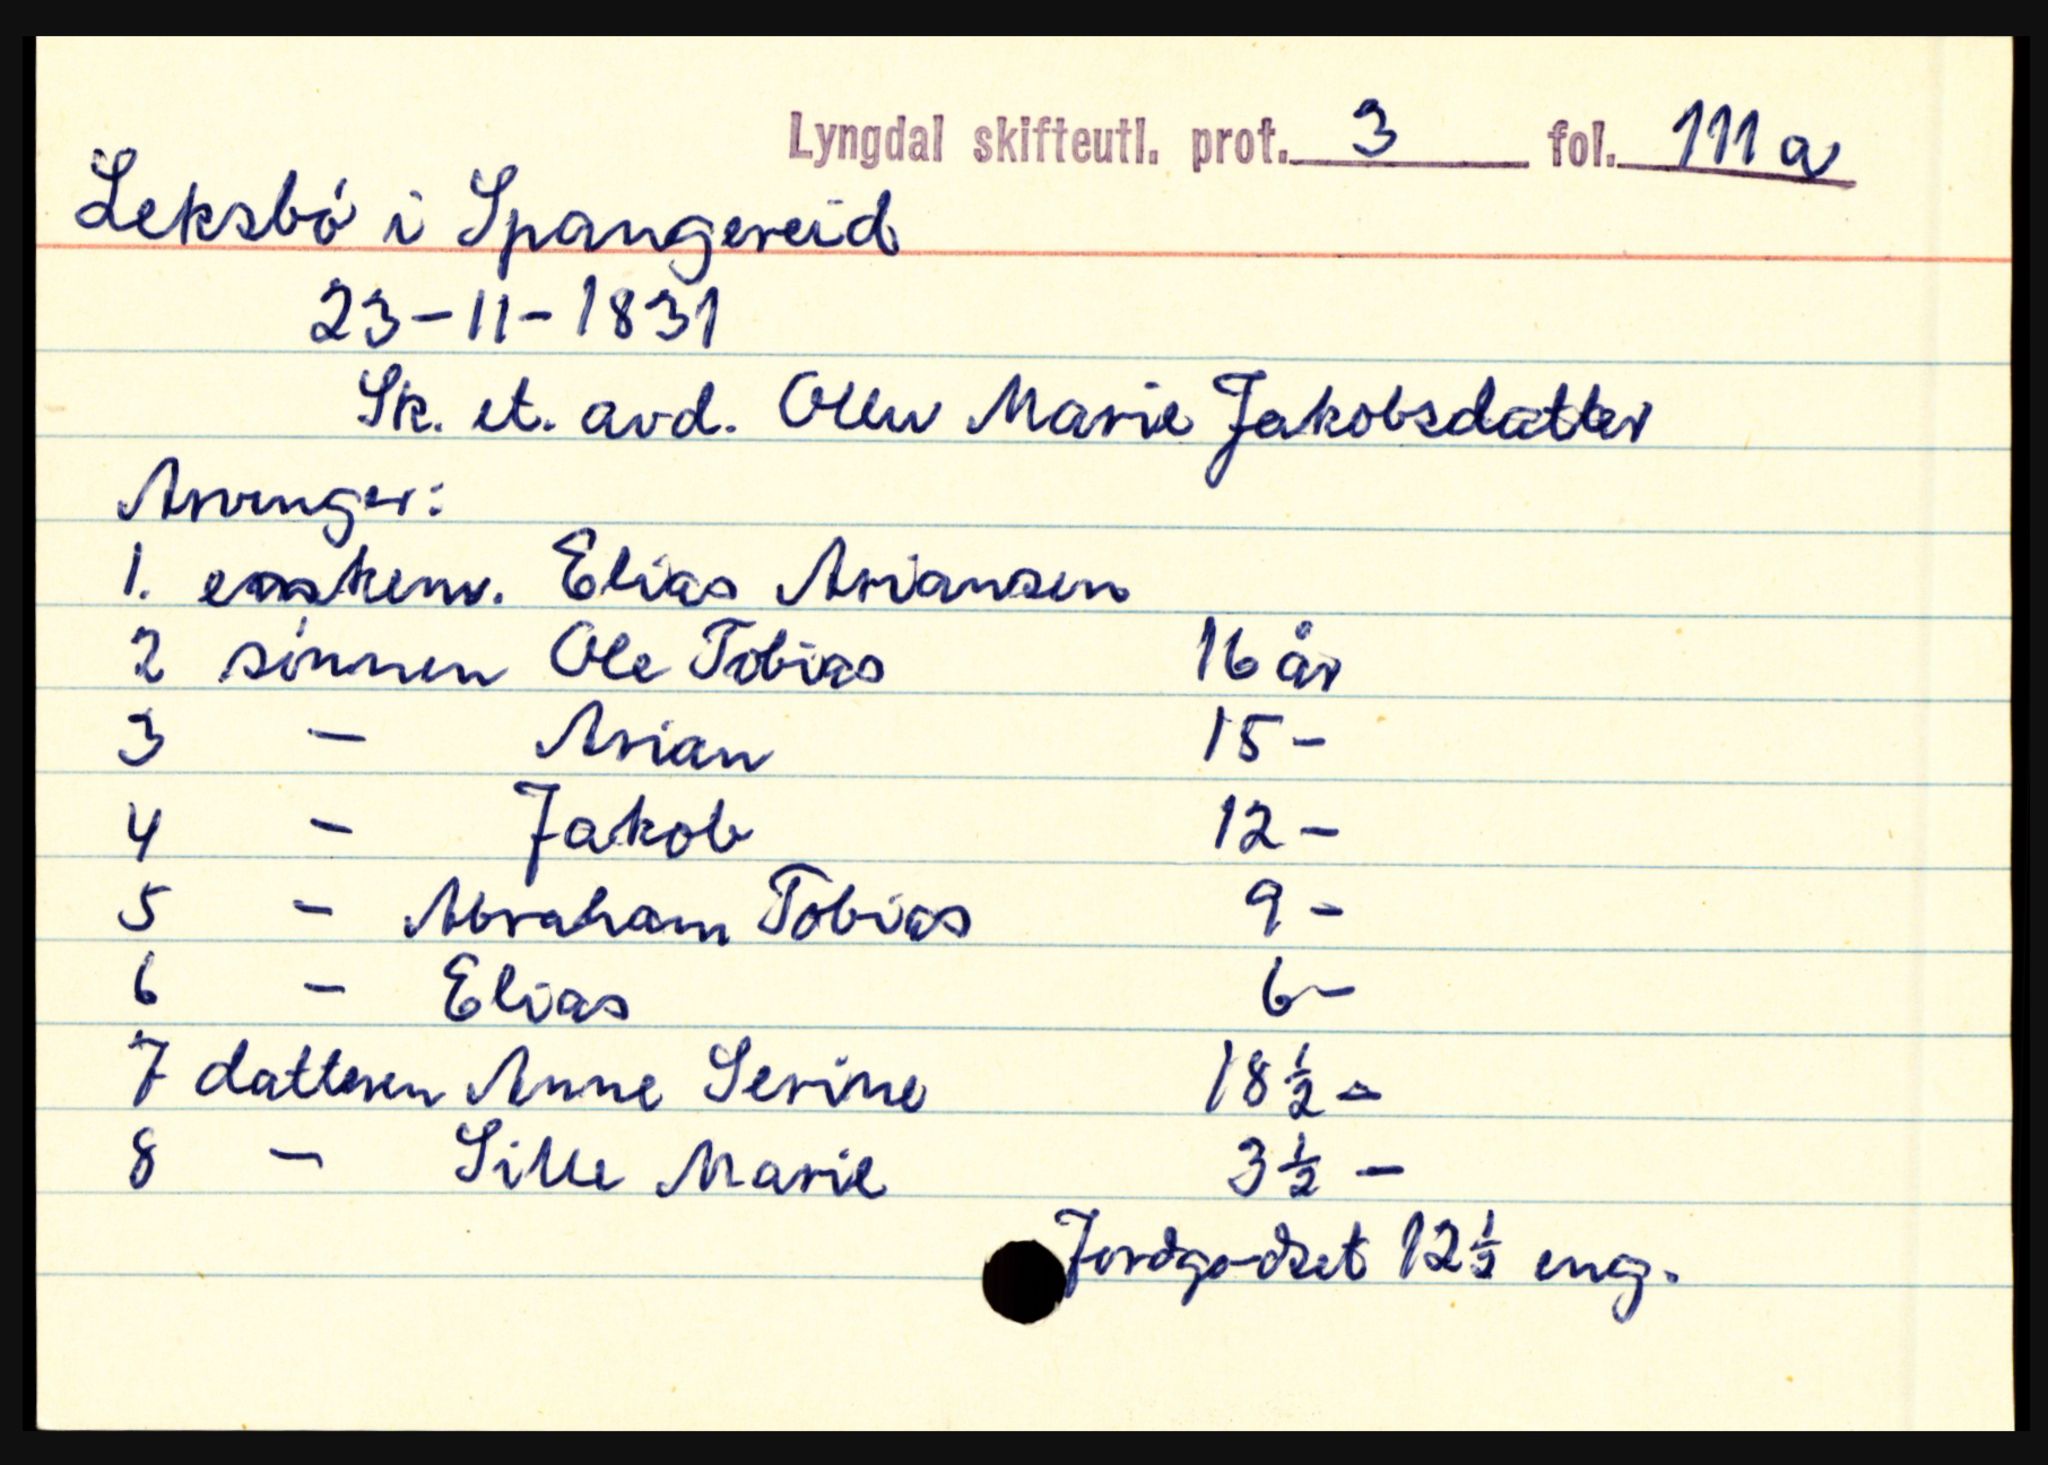 Lyngdal skifteutl. prot. 3 fol. 111 a
Leksbö i Spangereid
23-11-1831
Sk. et. avd. Olle Marie Jakobsdatter
Arvinger:
1. enkem. Elias Ariansen
2 sönnen Ole Tobias 16 år
3 - Arian 15 -
4 - Jakob 12 -
5 - Abraham Tobias 9 -
6 - Elias 6 -
7 datteren Anne Serine 18 ½ -
8 - Sille Marie 3 ½ -
Jordgodset 12 ½ eng.